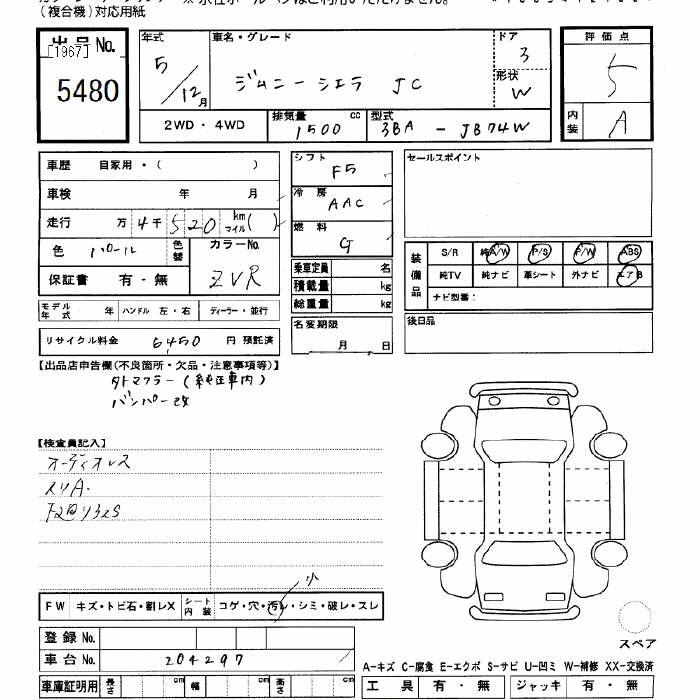 (複合機)対応用紙
出品No.
[1967]
5480
年式
5/12月
車名・グレード
ジムニーシエラ JC
ドア
3
形状
W
評価点
5
内装
A
2WD・4WD
排気量
1500
cc
型式
3BA - JB74W
車歴 自家用・( )
車検 年 月
走行 万 4千 520 km マイル( )
色 パール 色替
カラーNo.
ZVR
保証書 有・無
シフト
F5
冷房
AAC
燃料
G
乗車定員 名
積載量 kg
総重量 kg
セールスポイント
装備品
S/R 純A/W P/S P/W ABS
純TV 純ナビ 革シート 外ナビ エアB
ナビ型番:
モデル年式 年 ハンドル 左・右 ディーラー・並行
リサイクル料金 6450 円 預託済
名変期限
月 日
後日品
【出品店申告欄(不良箇所・欠品・注意事項等)】
外トマフラー(純正車内)
バンパー改
【検査員記入】
オーディオレス
スリA.
小
FW キズ・トビ石・割レX シート内装 コゲ・穴・汚レ・シミ・破レ・スレ
登録No.
車台No. 204297
車庫証明用 長さ cm 幅 cm 高さ cm
スペア
A-キズ C-腐食 E-エクボ S-サビ U-凹ミ W-補修 XX-交換済
工具 有・無 ジャッキ 有・無